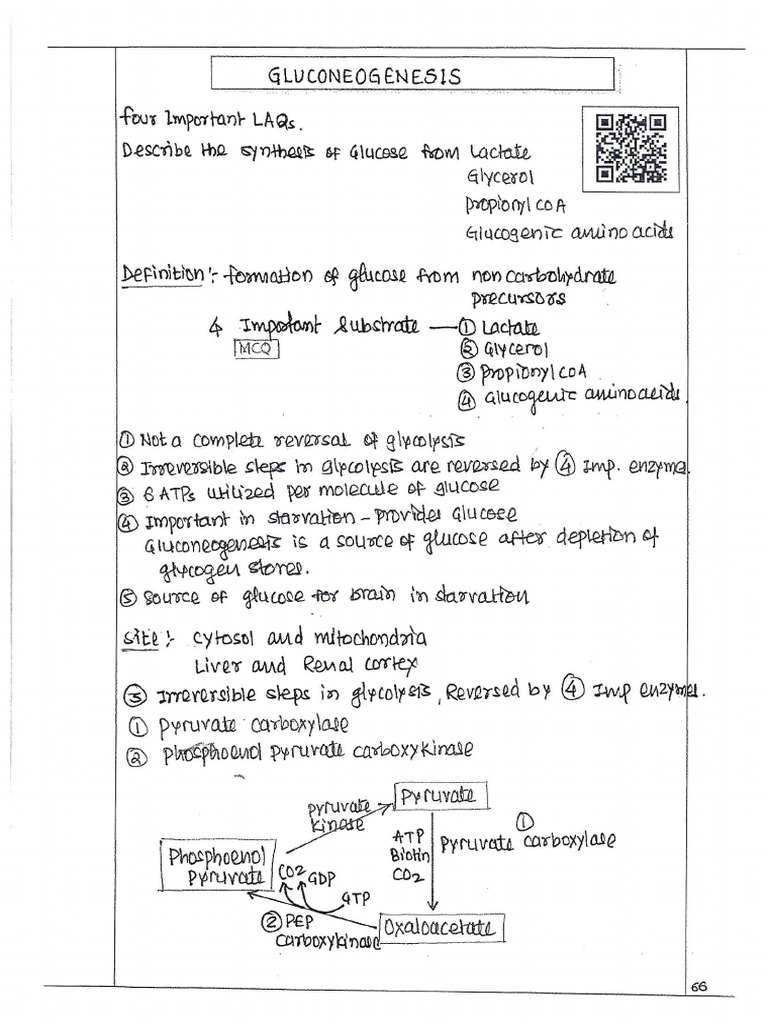 GLUCONEOGENESIS
Four Important LAQs.
Describe the synthesis of Glucose from Lactate
Glycerol
Propionyl CoA
Glucogenic amino acids
Definition:- formation of glucose from non carbohydrate
precursors
4 Important Substrate — ① Lactate
MCQ
② Glycerol
③ Propionyl CoA
④ Glucogenic amino acids.
① Not a complete reversal of glycolysis
② Irreversible steps in glycolysis are reversed by ④ Imp. enzyme.
③ 6 ATPs utilized per molecule of glucose
④ Important in starvation - provides Glucose
Gluconeogenesis is a source of glucose after depletion of
glycogen stores.
⑤ Source of glucose for brain in starvation
Site:- Cytosol and mitochondria
Liver and Renal cortex
③ Irreversible steps in glycolysis, Reversed by ④ Imp enzymes.
① Pyruvate carboxylase
② Phosphoenol pyruvate carboxykinase
Pyruvate
pyruvate
kinase
①
Pyruvate carboxylase
ATP
Biotin
CO2
Phosphoenol
Pyruvate
CO2
GDP
GTP
② PEP
carboxykinase
Oxaloacetate
66